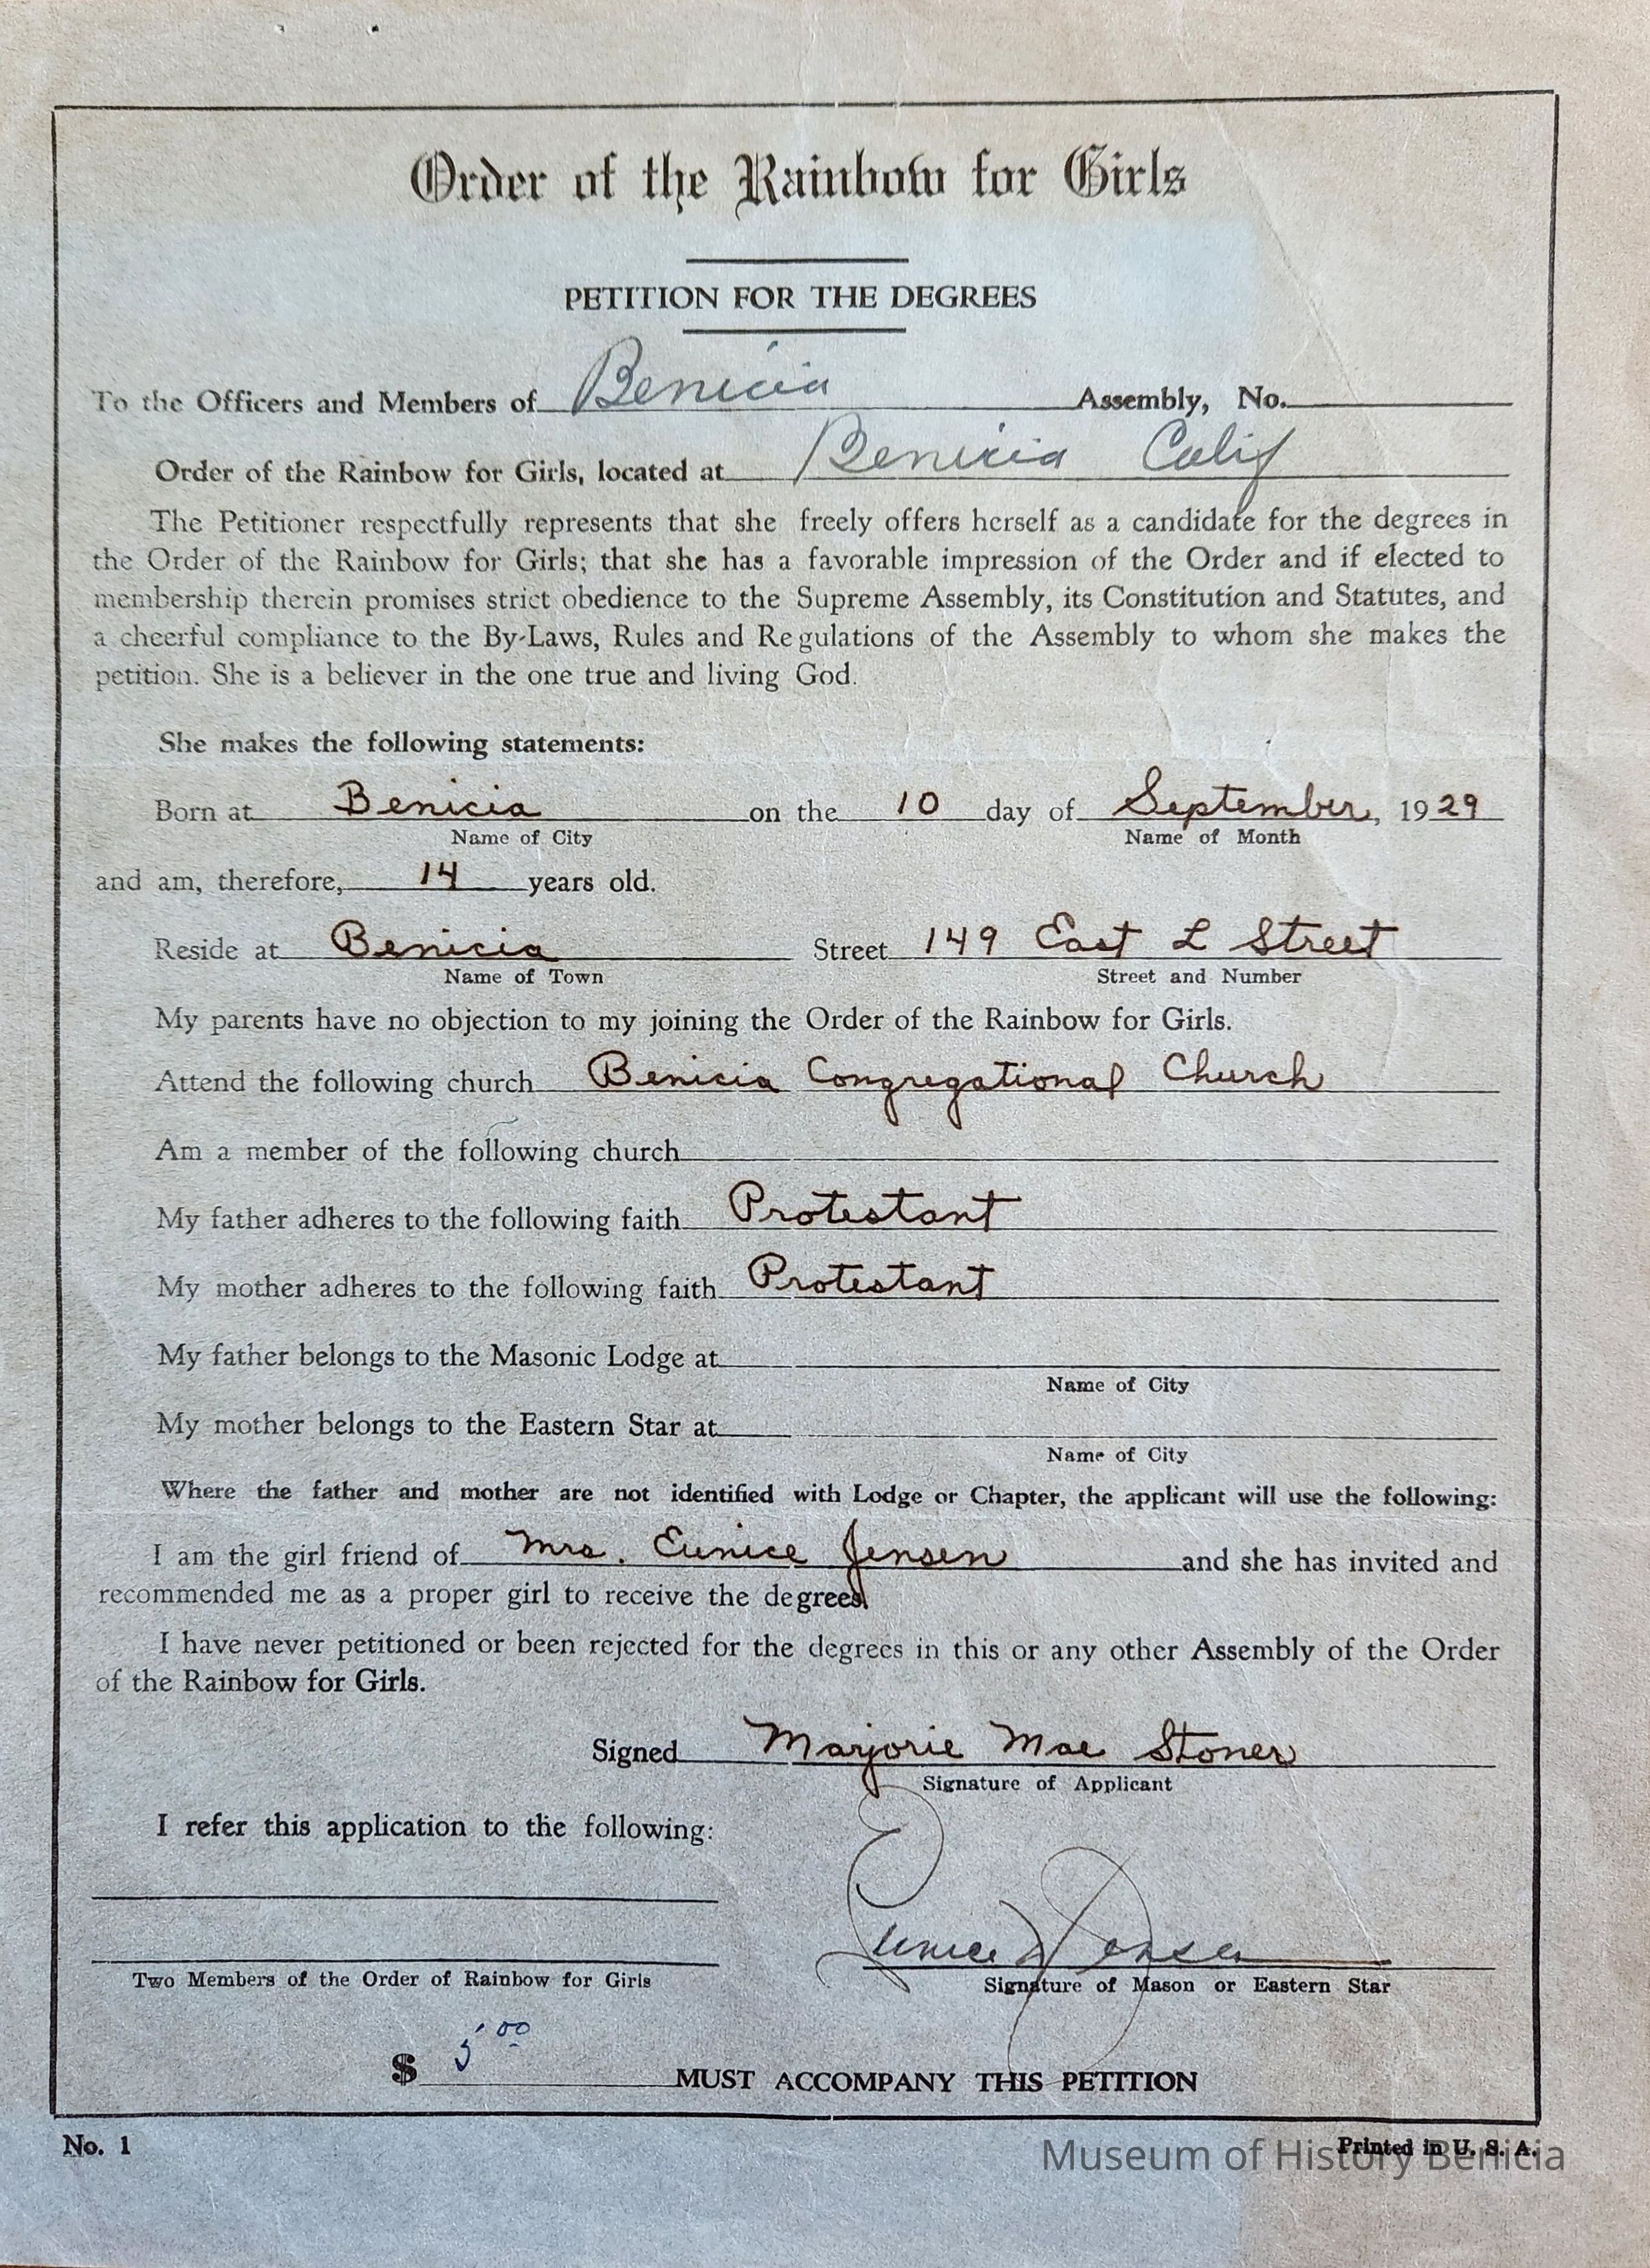 Order of the Rainbow for Girls
PETITION FOR THE DEGREES
To the Officers and Members of Benicia Assembly, No.
Order of the Rainbow for Girls, located at Benicia Calif
The Petitioner respectfully represents that she freely offers herself as a candidate for the degrees in
the Order of the Rainbow for Girls; that she has a favorable impression of the Order and if elected to
membership therein promises strict obedience to the Supreme Assembly, its Constitution and Statutes, and
a cheerful compliance to the By-Laws, Rules and Regulations of the Assembly to whom she makes the
petition. She is a believer in the one true and living God.
She makes the following statements:
Born at Benicia on the 10 day of September, 1929
Name of City Name of Month
and am, therefore, 14 years old.
Reside at Benicia Street 149 East L Street
Name of Town Street and Number
My parents have no objection to my joining the Order of the Rainbow for Girls.
Attend the following church Benicia Congregational Church
Am a member of the following church
My father adheres to the following faith Protestant
My mother adheres to the following faith Protestant
My father belongs to the Masonic Lodge at
Name of City
My mother belongs to the Eastern Star at
Name of City
Where the father and mother are not identified with Lodge or Chapter, the applicant will use the following:
I am the girl friend of Mrs. Eunice Jensen and she has invited and
recommended me as a proper girl to receive the degrees.
I have never petitioned or been rejected for the degrees in this or any other Assembly of the Order
of the Rainbow for Girls.
Signed Marjorie Mae Stoner
Signature of Applicant
I refer this application to the following:
Eunice Jensen
Two Members of the Order of Rainbow for Girls Signature of Mason or Eastern Star
$ 5.00 MUST ACCOMPANY THIS PETITION
No. 1 Printed in U. S. A.
Museum of History Benicia